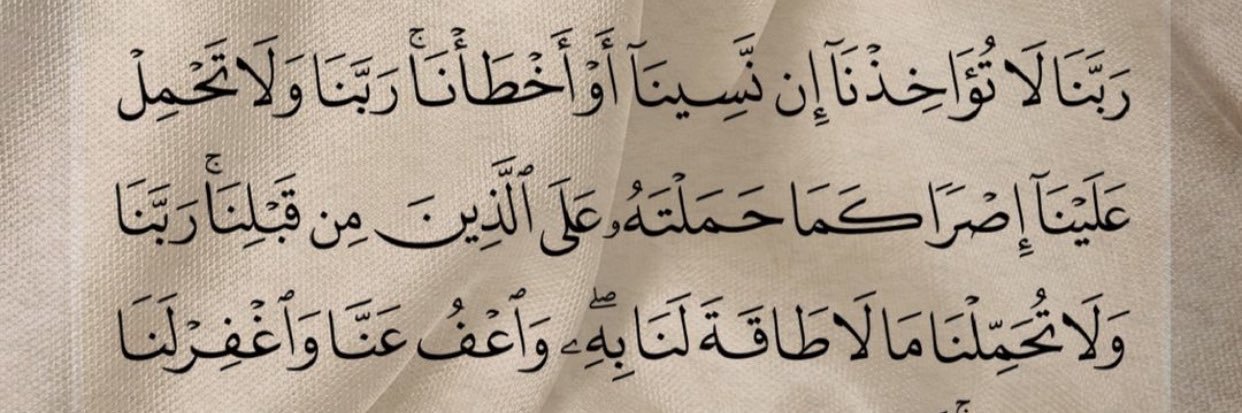 رَبَّنَا لَا تُؤَاخِذْنَآ إِن نَّسِينَآ أَوْ أَخْطَأْنَا ۚ رَبَّنَا وَلَا تَحْمِلْ
عَلَيْنَآ إِصْرًا كَمَا حَمَلْتَهُۥ عَلَى ٱلَّذِينَ مِن قَبْلِنَا ۚ رَبَّنَا
وَلَا تُحَمِّلْنَا مَا لَا طَاقَةَ لَنَا بِهِۦ ۖ وَٱعْفُ عَنَّا وَٱغْفِرْ لَنَا